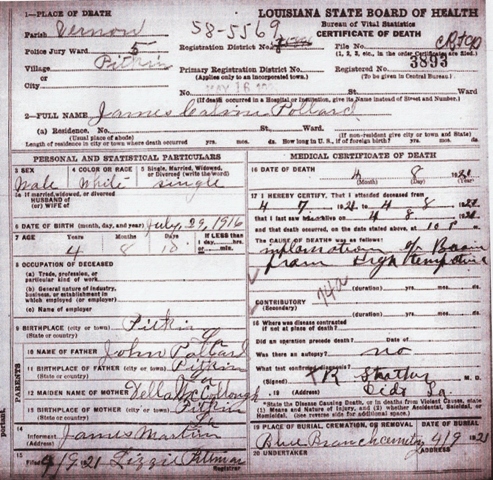 1—PLACE OF DEATH
Parish Vernon
Police Jury Ward 5
Village Pitkin
or
City
58-5569
LOUISIANA STATE BOARD OF HEALTH
Bureau of Vital Statistics
CERTIFICATE OF DEATH
Registration District No.
File No.
(1, 2, 3, etc., in the order Certificates are filed.)
Primary Registration District No.
(Applies only to an incorporated town.)
Registered No. 3893
(To be given in Central Bureau.)
No. St. Ward
(If death occurred in a Hospital or Institution, give its Name instead of Street and Number.)
2—FULL NAME James Calvin Pollard
(a) Residence. No. St. Ward.
(Usual place of abode) (If non-resident give city or town and State)
Length of residence in city or town where death occurred yrs. mos. ds. How long in U. S., if of foreign birth? yrs. mos. ds.
PERSONAL AND STATISTICAL PARTICULARS
3 SEX Male
4 COLOR OR RACE White
5 Single, Married, Widowed, or Divorced (write the word) single
5a If married, widowed, or divorced
HUSBAND of
(or) WIFE of
6 DATE OF BIRTH (month, day, and year) July 29, 1916
7 AGE Years 4 Months 8 Days
If LESS than
1 day, hrs.
or min.
8 OCCUPATION OF DECEASED
(a) Trade, profession, or
particular kind of work
(b) General nature of industry,
business, or establishment in
which employed (or employer)
(c) Name of employer
9 BIRTHPLACE (city or town) Pitkin
(State or country) La
PARENTS
10 NAME OF FATHER John Pollard
11 BIRTHPLACE OF FATHER (city or town) Pitkin
(State or country) La
12 MAIDEN NAME OF MOTHER Della McCollough
13 BIRTHPLACE OF MOTHER (city or town) Pitkin
(State or country) La
14 Informant James Martin
(Address)
15 Filed 4/9 21 Lizzie Pittman
Registrar
MEDICAL CERTIFICATE OF DEATH
16 DATE OF DEATH 4 8 1921
(Month) (Day) (Year)
17 I HEREBY CERTIFY, That I attended deceased from
4 7 1921 to 4 8 1921
that I last saw alive on 4 8 1921
and that death occurred, on the date stated above, at 10 P m.
The CAUSE OF DEATH was as follows:
Inflamation of Brain
from High temp
(duration) yrs. mos. ds.
CONTRIBUTORY
(Secondary)
74a
(duration) yrs. mos. ds.
18 Where was disease contracted
if not at place of death?
Did an operation precede death? Date of
Was there an autopsy? no
What test confirmed diagnosis?
(Signed) M. D.
(Address) La.
*State the Disease Causing Death, or in Deaths from Violent Causes, state
(1) Means and Nature of Injury, and (2) whether Accidental, Suicidal, or
Homicidal. (See reverse side for additional space.)
19 PLACE OF BURIAL, CREMATION, OR REMOVAL
DATE OF BURIAL
Branch cemetery 4/9 1921
20 UNDERTAKER
(Address)
portant.